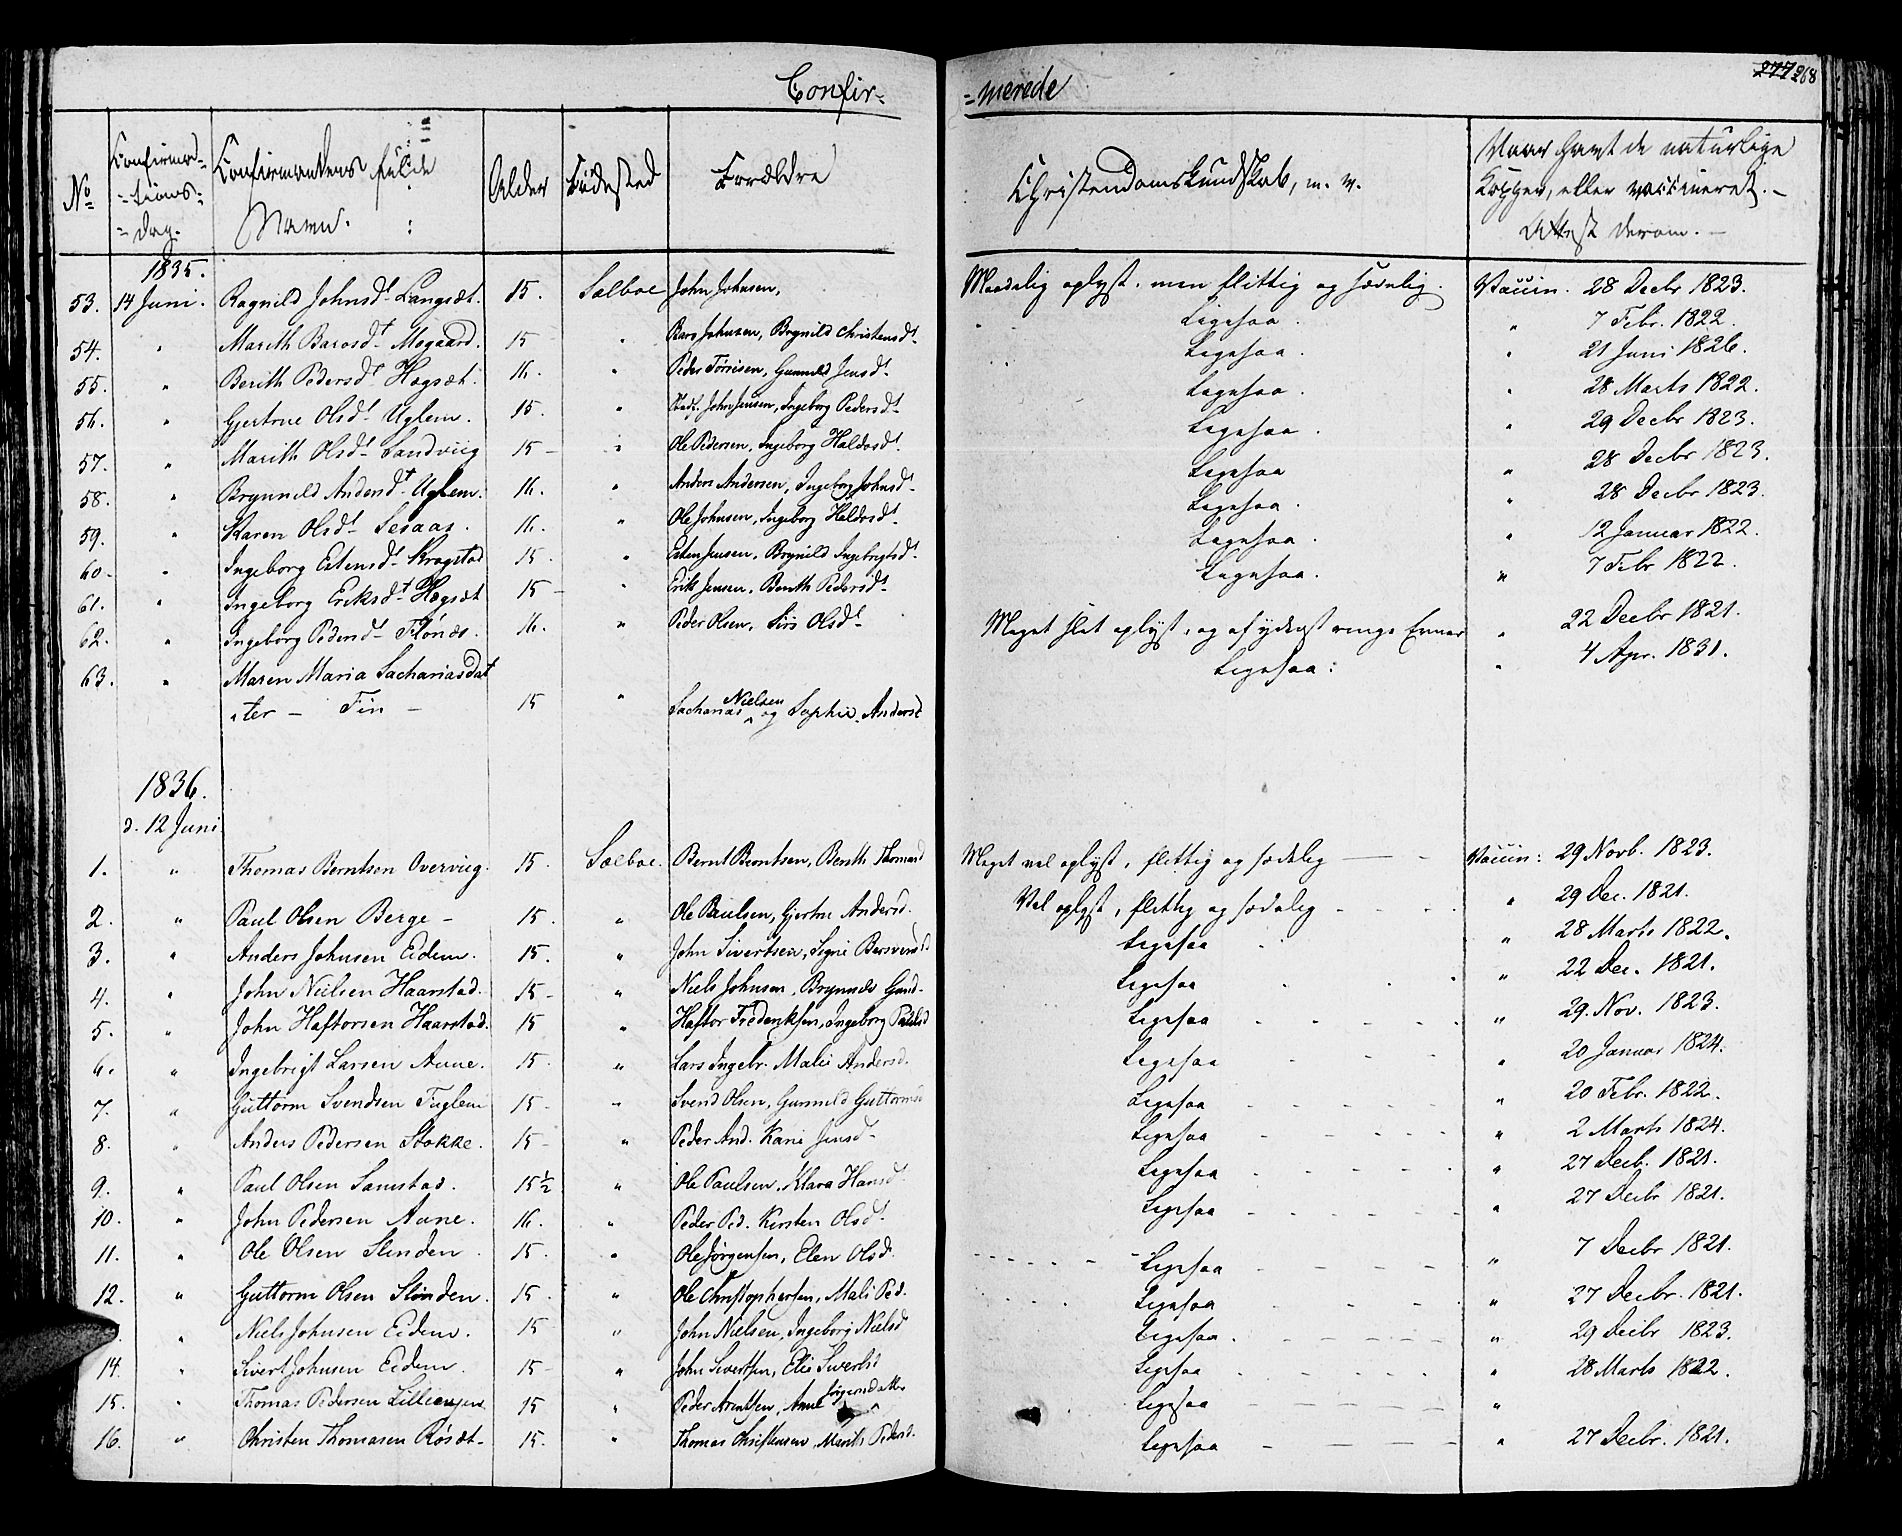 Confir-
=merede
277 268
No
Confirma-
-tions-
-Dag.
Confirmandens fulde
Navn.
Alder
Fødested
Forældre
Christendomskundskab, m. v.
Naar havt de naturlige
Kopper, eller vaccineret. -
Attest derom. -
1835.
53. 14 Juni. Ragnild Johnsdt Langsæt. 15. Sælboe John Johnsen, Maadelig oplyst, men flittig og sædelig. Vaccin. 28 Decbr 1823.
54. " Marith Barosdt Mogaard. 15 - " Baro Johnsen, Brynild Christensdt Ligesaa. " 7 Febr. 1822.
55. " Berith Pedersdt Hægsæt. 16. " Peder Gunnild Jensdt Ligesaa. " 21 Juni 1826.
56. " Gjertrue Olsdt Uglem. 15. " John Jensen, Ingeborg Pedersdt Ligesaa. " 28 Marts 1822.
57. " Marith Olsdt Sandviig 15 - " Ole Pedersen, Ingeborg Haldosdt Ligesaa. " 29 Decbr 1823.
58. " Brynnild Andersdt Uglem. 16. " Anders Andersen, Ingeborg Johnsdt Ligesaa " 28 Decbr 1823.
59. " Karen Olsdt Sesaas. 16. " Ole Johnsen, Ingeborg Haldosdt Ligesaa. " 28 Decbr 1823.
60. " Ingeborg Estensdt Kragstad 15. " Esten Jensen, Brynild Ingebrigtsdt Ligesaa. " 12 Januar 1822.
61. " Ingeborg Eriksdt Hægsæt 15 - " Erik Jensen, Berith Pedersdt Ligesaa. " 7 Febr 1822.
62. " Ingeborg Pedersdt Flønæs. 16. " Peder Olsen, Siri Olsdt Meget slet oplyst, og af yderst ringe Evner " 22 Decbr 1821.
63. " Maren Maria Sachariasdat Ligesaa: " 4 Apr. 1831.
-ter - Fin - 15 " Sacharias Nielsen og Sophie Andersd
1836.
d. 12 Juni
1. " Thomas Berntsen Overviig. 15. Sælboe. Bernt Berntsen, Berith Thomasd Meget vel oplyst, flittig og sædelig - - Vaccin: 29 Novb. 1823.
2. " Paul Olsen Berge - 15. " Ole Paulsen, Gjertru Andersd. Vel oplyst, flittig og sædelig - - - " 29 Dec. 1821.
3. " Anders Johnsen Eidem. 15. " John Sivertsen, Signi Ligesaa " 28 Marts 1822.
4. " John Nielsen Haarstad. 15 - " Niels Johnsen, Ligesaa " 22 Dec. 1821.
5. " John Haftorsen Haarstad. 15 " Haftor Frederiksen, Ingeborg Paulsd Ligesaa - - - " 29. Nov. 1823.
6. " Ingebrigt Larsen Aune. 15. " Lars Ingebr. Mali Andersd. Ligesaa - - - " 20 Januar 1824.
7. " Guttorm Svendsen Fuglem 15 - " Svend Olsen, Gunnild Guttormsd Ligesaa - - - " 20 Febr. 1822.
8. " Anders Pedersen Stokke. 15 - " Peder And. Kari Jensd - Ligesaa - - - " 2 Marts 1824.
9. " Paul Olsen Samstad. 15½ " Ole Paulsen, Klara Hansd. Ligesaa - - - " 27 Decb. 1821.
10. " John Pedersen Aune. 16. " Peder Ped. Kirsten Olsdt Ligesaa - - - " 27 Decbr 1821.
11. " Ole Olsen Slinden 15. " Ole Jørgensen, Elen Olsd. Ligesaa - - - " 7 Decbr 1821.
12. " Guttorm Olsen Slinden. 15. " Ole Christophersen, Mali Ped. Ligesaa - - - " 27 Decbr. 1821.
" Niels Johnsen Eidem. 15 " John Nielsen, Ingeborg Nielsd Ligesaa. - - - " 29 Decbr 1823.
14. " Sivert Johnsen Eidem. 15 - " John Sivertsen, Eli Sivertsd Ligesaa - - - " 28 Marts 1822.
15. " Thomas Pedersen 15 " Peder Arentsen, Anne Jørgensdatter Ligesaa - - - "
16. " Christen Thomasen Røsæt - 15. " Thomas Christensen, Marith Pedersd. Ligesaa - - - " 27 Decbr. 1821.